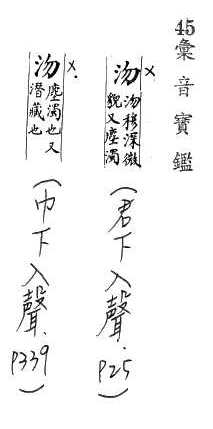 45彙音寶鑑
x
沕沕穆深微
貌又塵濁
(君下入聲.P25)
x.
沕塵濁也又
潛藏也
(巾下入聲.P339)